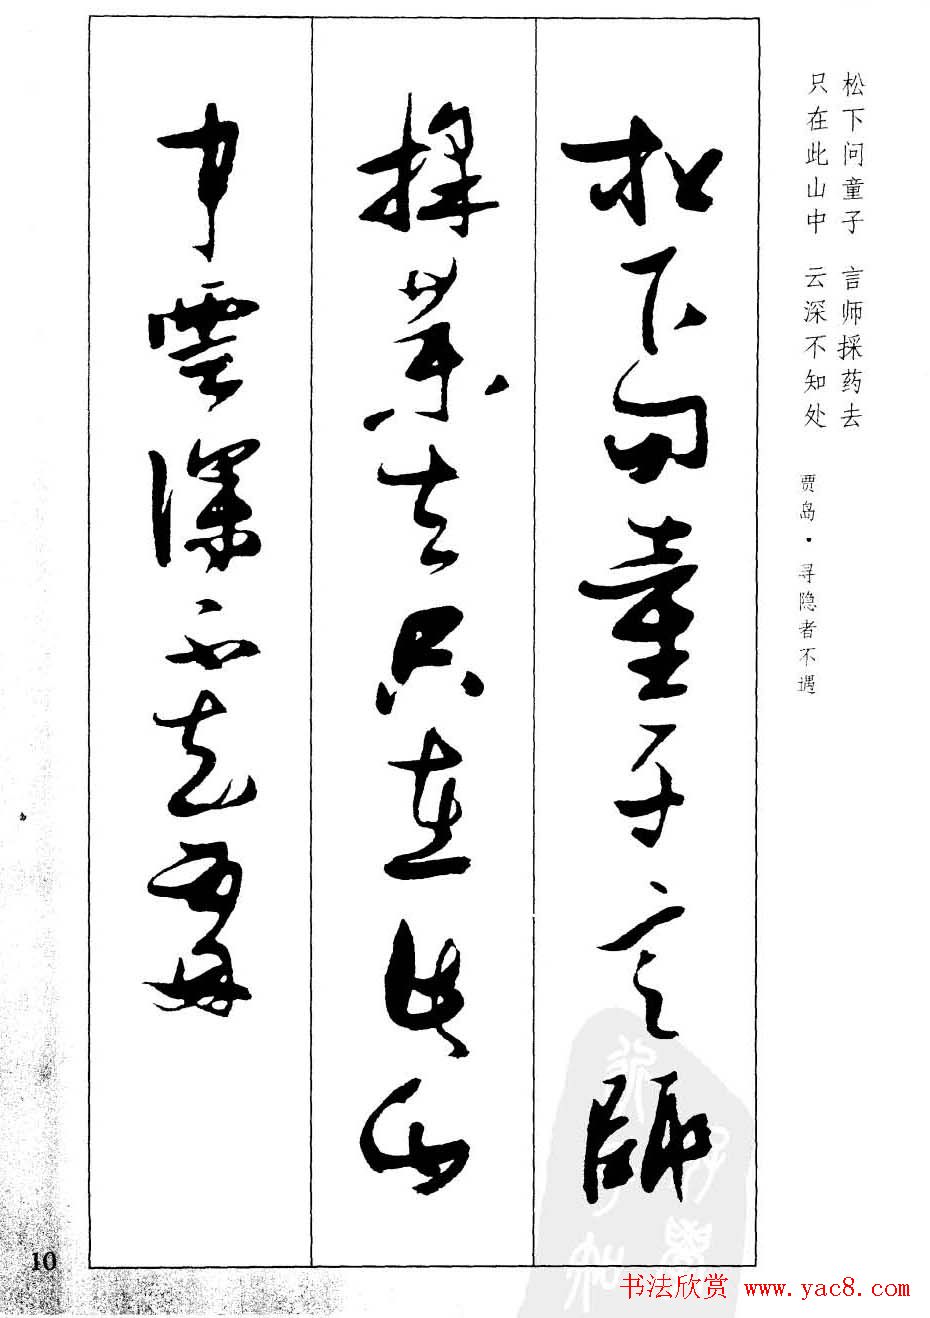 松下问童子 言师採药去
只在此山中 云深不知处
贾岛·寻隐者不遇
松下問童子言師
採藥去只在此山
中雲深不知處
10
书法欣赏 www.yac8.com